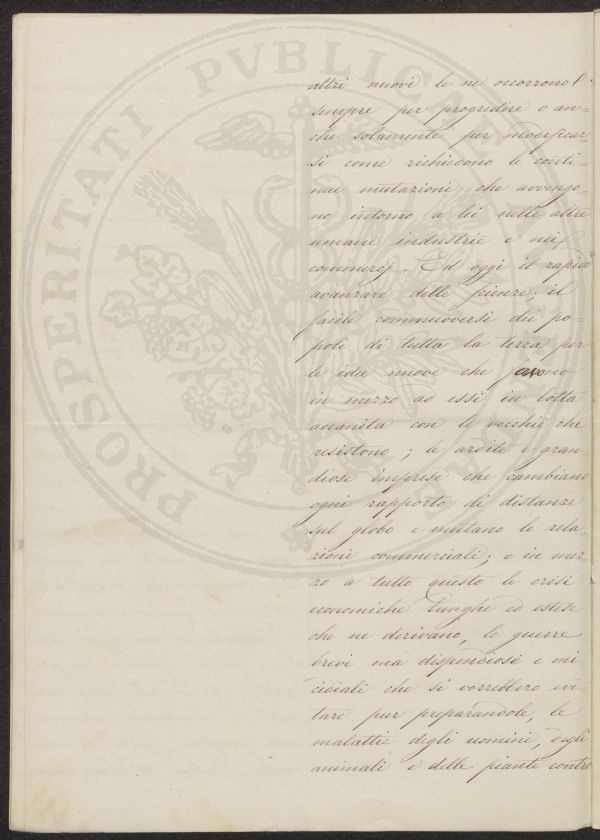 PROSPERITATI PVBLICAE
altri nuovi le ne occorrono
sempre per progredire o an-
che solamente per modificar-
si come richiedono le conti-
nue mutazioni che avvengo-
no intorno a lei nelle altre
umane industrie e nei
commercj. Ed oggi il rapido
avanzare delle scienze, il
facile commuoversi dei po-
poli di tutta la terra per
le idee nuove che
in mezzo ad essi in lotta
accanita con le vecchie che
resistono; le ardite e gran-
diose imprese che cambiano
ogni rapporto di distanze
sul globo e mutano le rela-
zioni commerciali; e in mez-
zo a tutto questo le crisi
economiche lunghe ed estese
che ne derivano, le guerre
brevi ma dispendiose e mi-
cidiali che si vorrebbero evi-
tare pur preparandole, le
malattie degli uomini, degli
animali e delle piante contro